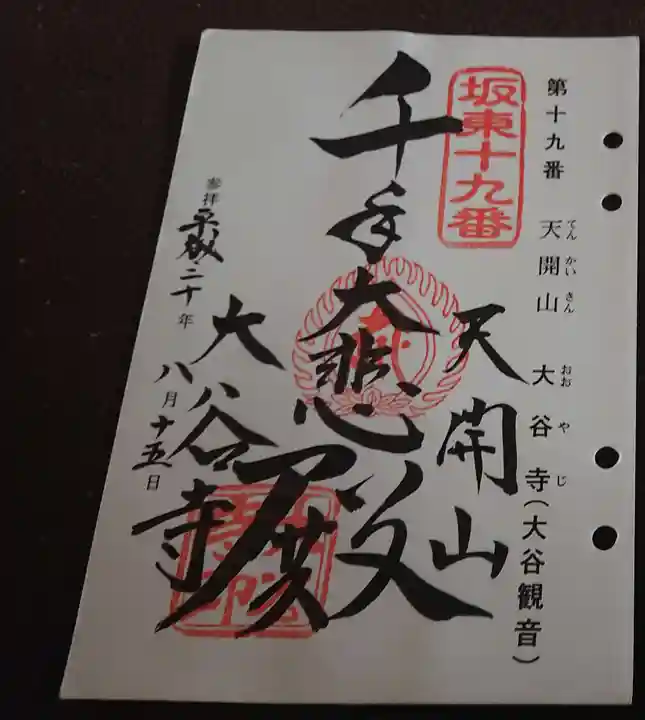 第十九番 天開山 大谷寺(大谷観音)
てんかいさん おおやじ
坂東十九番
天開山
千手大悲殿
大谷寺
参拝平成二十年八月十五日